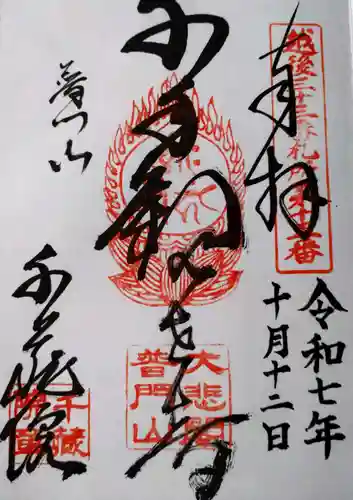 奉拝
越後三十三番札所第十二番
令和七年
十月十二日
千手観世音
大悲閣
普門山
普门山
千蔵院
千蔵